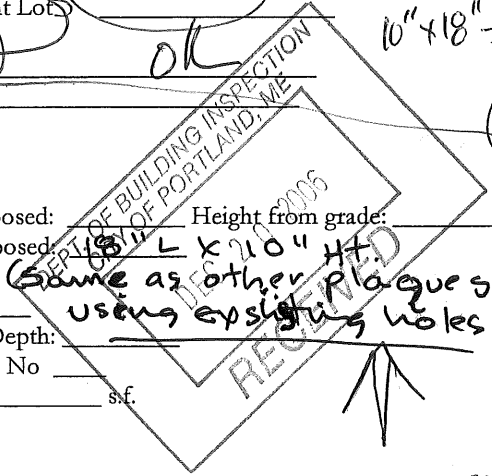 t Lot
10"x18"
OK
DEPT. OF BUILDING INSPECTION
CITY OF PORTLAND, ME
DEC 20 2006
RECEIVED
posed: Height from grade:
posed: 18" L x 10" Ht.
(Same as other plaques
using expsisting holes
Depth:
No
s.f.